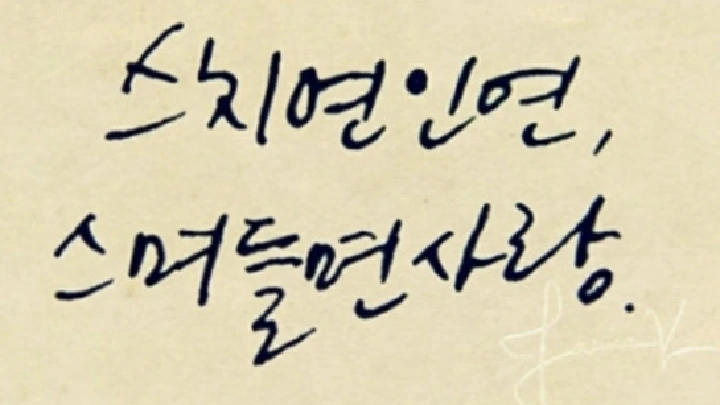 스치면인연,
스며들면사랑.